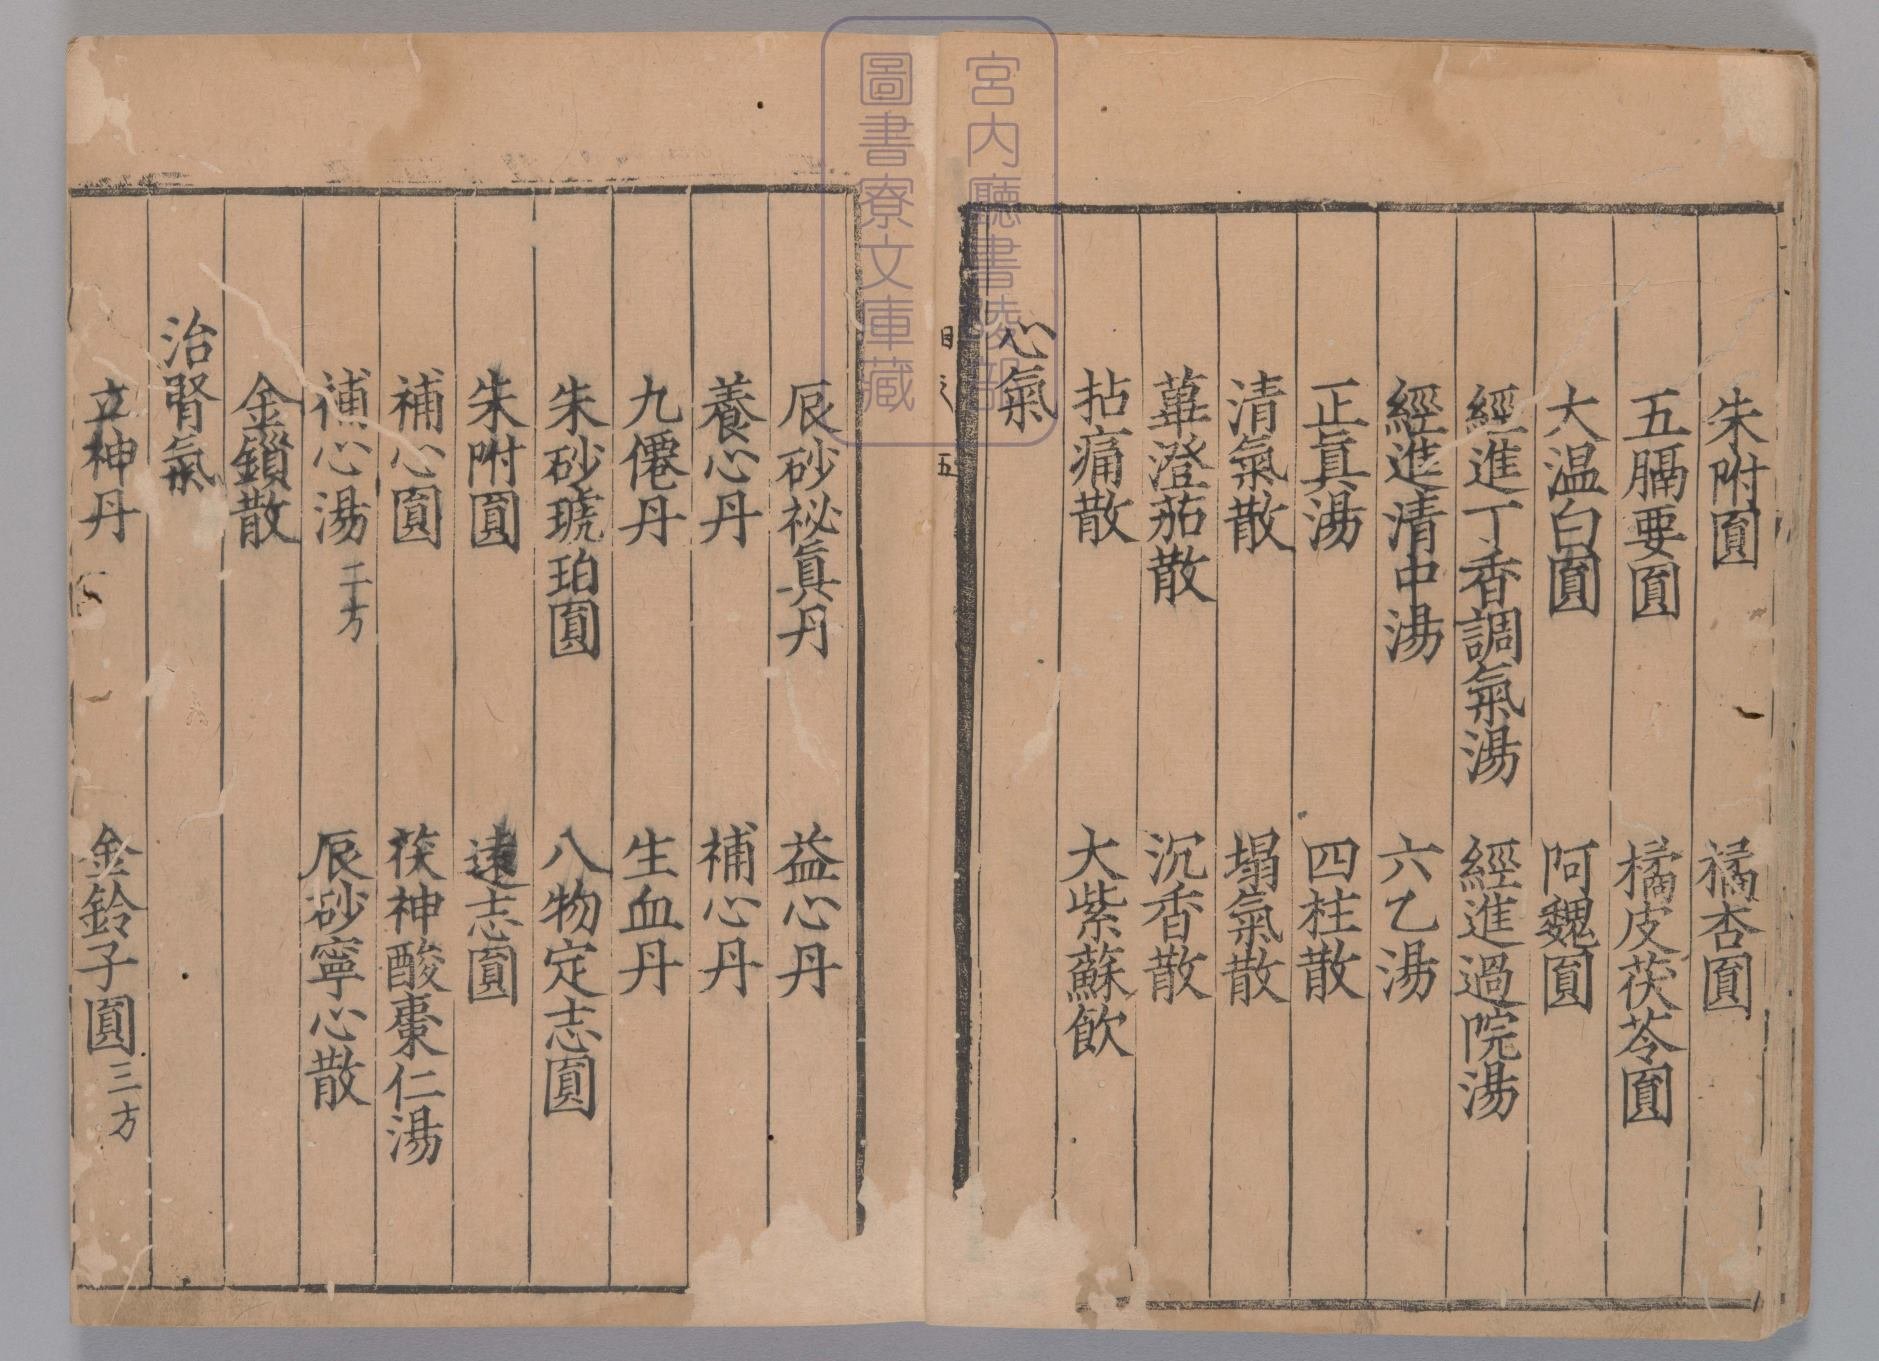 朱附圓　橘杏圓
五膈要圓　橘皮茯苓圓
大温白圓　阿魏圓
經進丁香調氣湯　經進過院湯
經進清中湯　六乙湯
正眞湯　四柱散
清氣散　塌氣散
蓽澄茄散　沉香散
拈痛散　大紫蘇飲
心氣
目 五
辰砂祕眞丹　益心丹
養心丹　補心丹
九僊丹　生血丹
朱砂琥珀圓　八物定志圓
朱附圓　遠志圓
補心圓　茯神酸棗仁湯
補心湯二方　辰砂寧心散
金鎖散
治腎氣
立神丹　金鈴子圓三方
宮内廳書陵部
圖書寮文庫藏